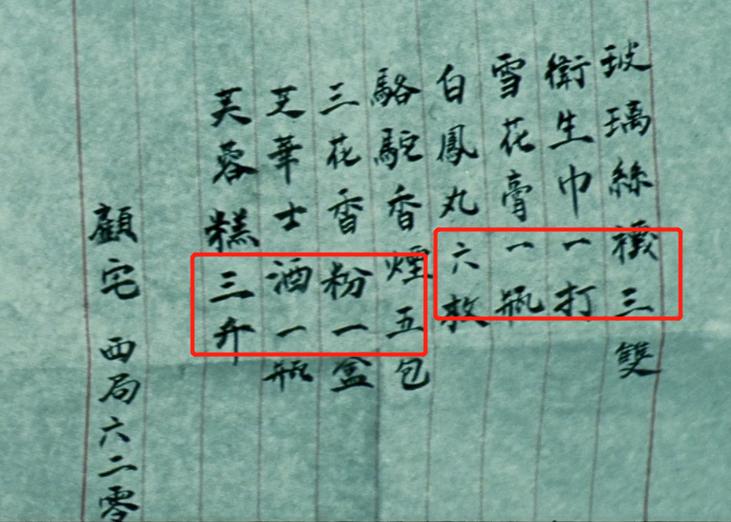 玻璃絲襪三雙
衛生巾一打
雪花膏一瓶
白鳳丸六枚
駱駝香煙五包
三花香粉一盒
芝華士酒一瓶
芙蓉糕三斤
顧宅 西局六二零